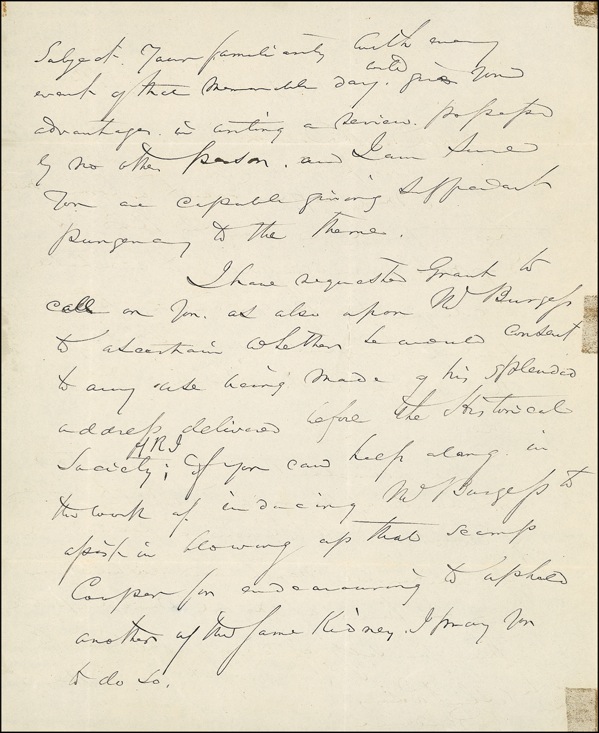 Subject. Your familiarity with every
event of that memorable day. will give you
advantages. in writing a review. possessed
by no other person. and I am sure
you are capable giving sufficient
pungency to the theme.
I have requested Grant to
call on you. as also upon Mr Burgess
to ascertain whether he would consent
to any use being made of his splendid
address delivered before the Historical
Society; of RI If you can help along. in
the work of inducing Mr Burgess to
assist in blowing up that scamp
Cooper for endeavouring to uphold
another of the same Kidney. I pray you
to do so.